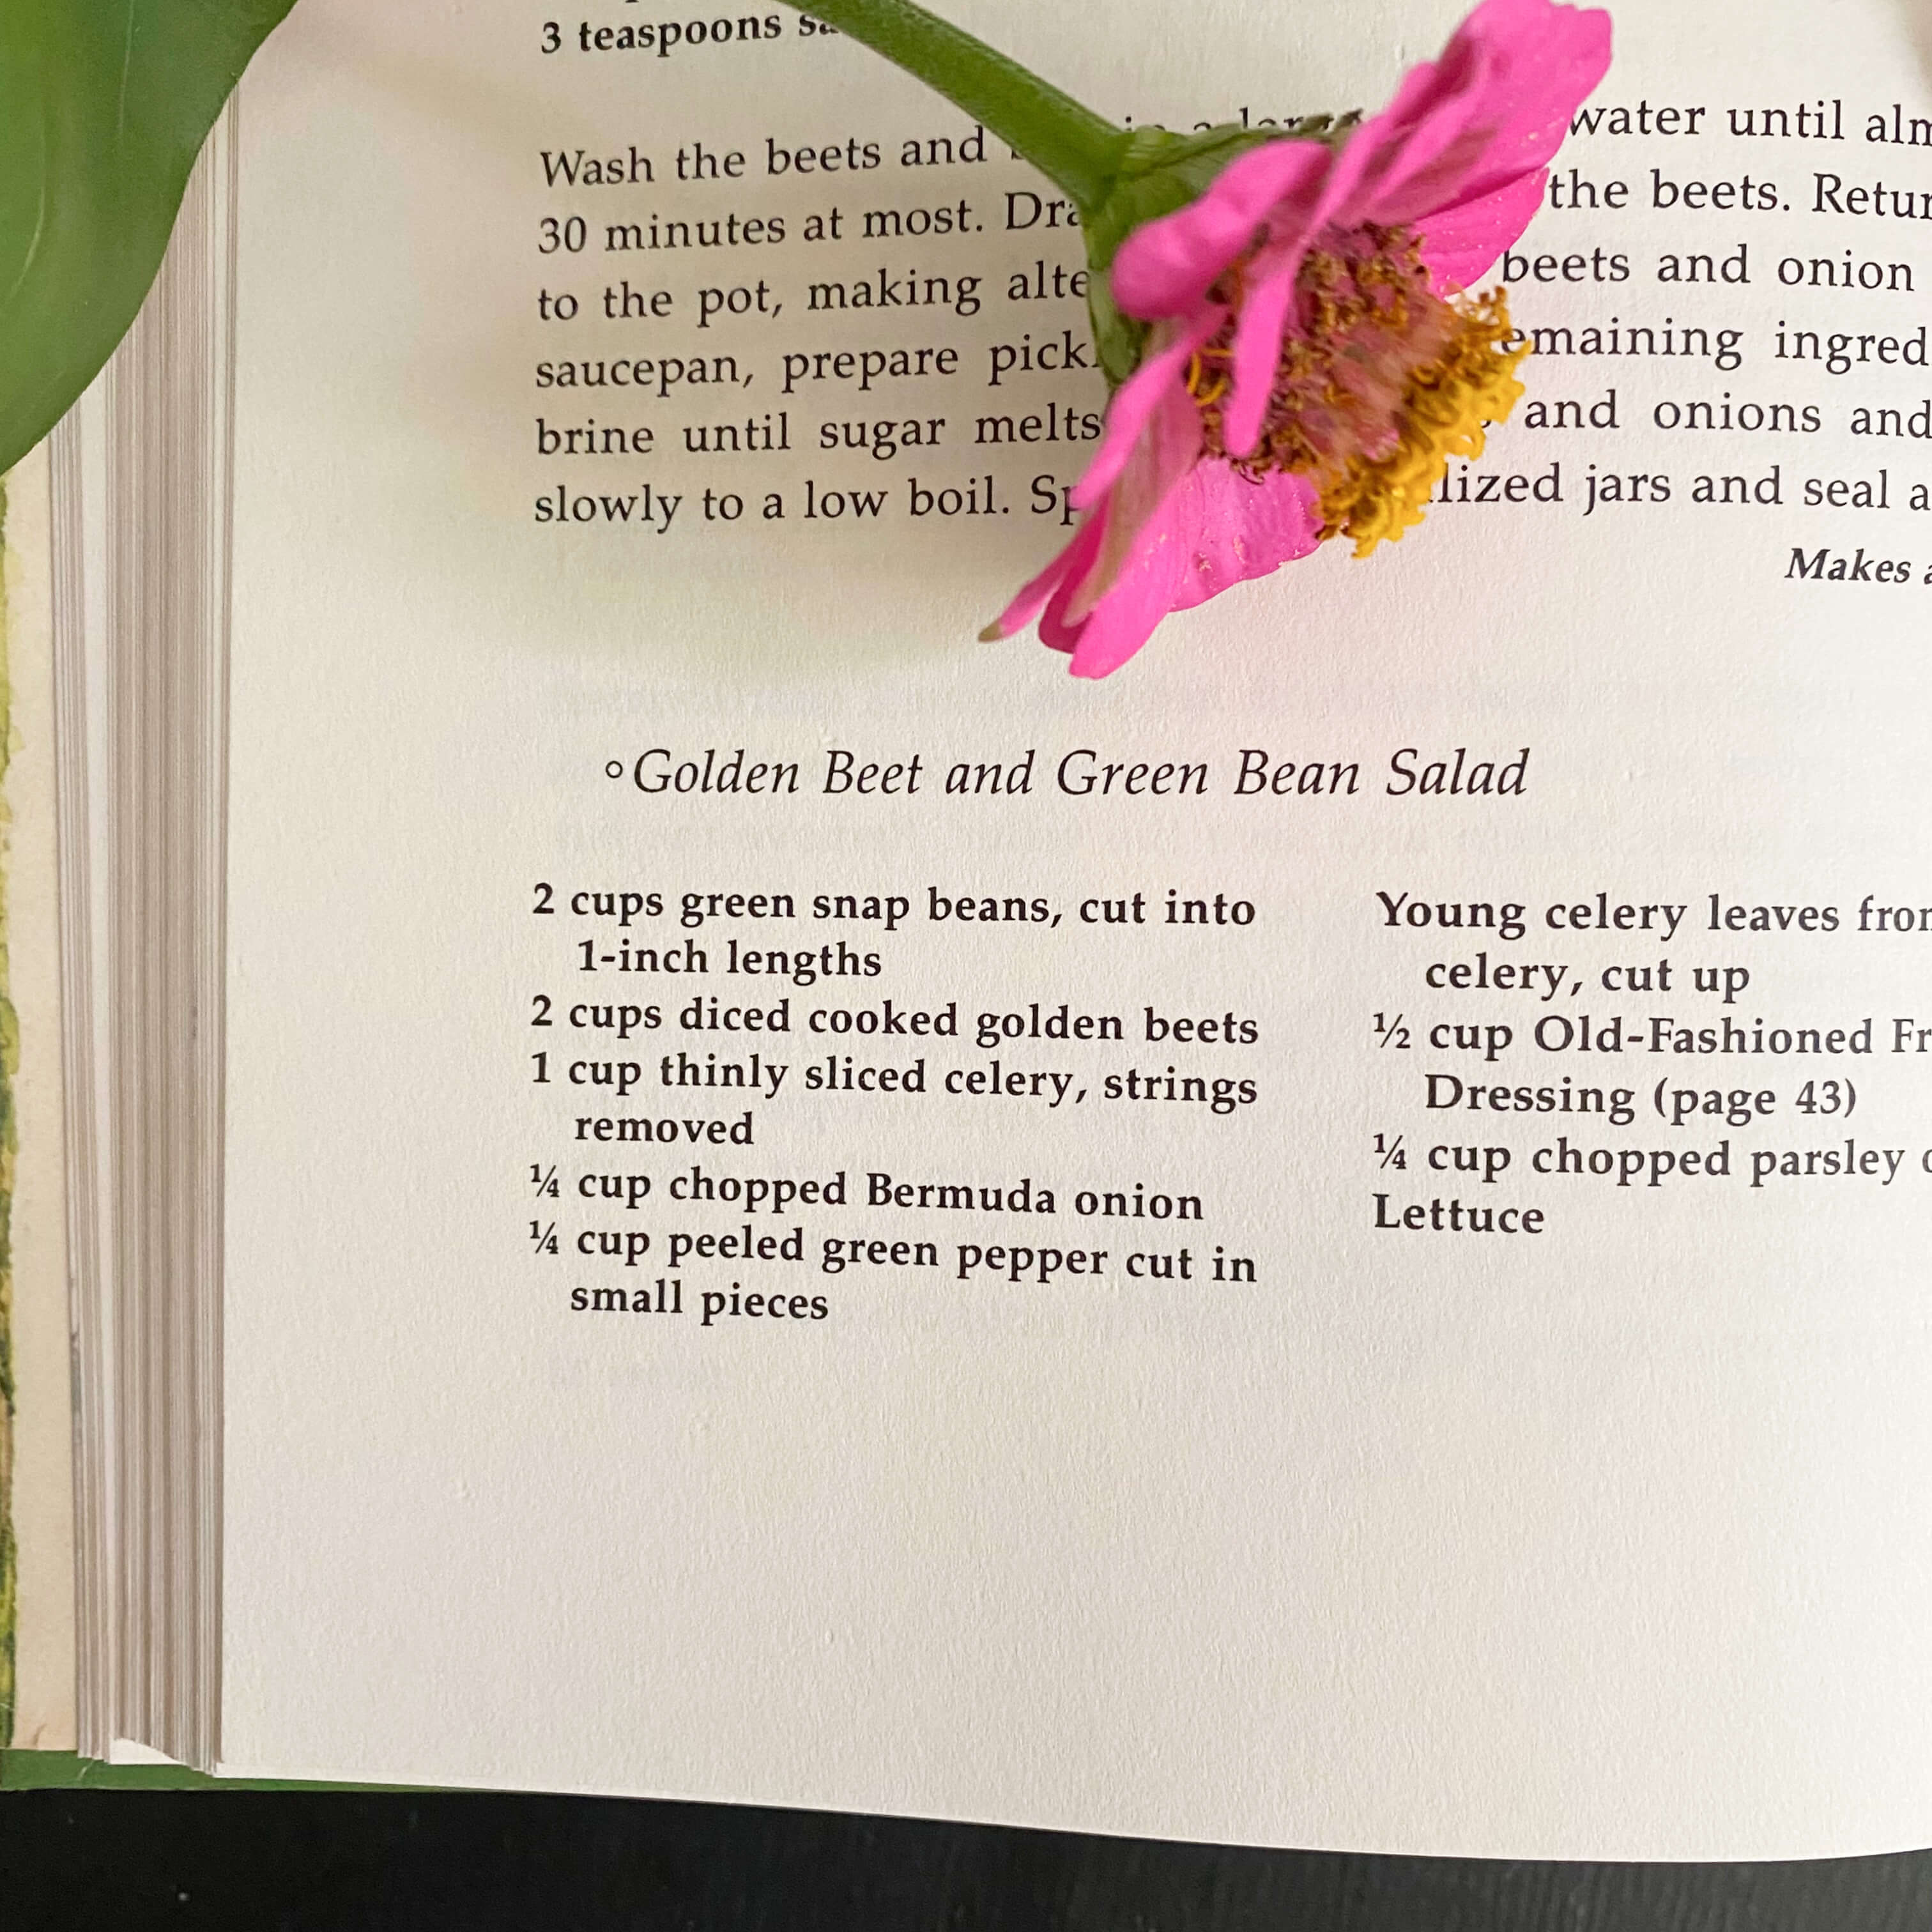 3 teaspoons
Wash the beets and water until
30 minutes at most. the beets.
to the pot, making beets and onion
saucepan, prepare
brine until sugar melts and onions and
slowly to a low boil. jars and seal
Makes
Golden Beet and Green Bean Salad
2 cups green snap beans, cut into
1-inch lengths
2 cups diced cooked golden beets
1 cup thinly sliced celery, strings
removed
¼ cup chopped Bermuda onion
¼ cup peeled green pepper cut in
small pieces
Young celery leaves
celery, cut up
½ cup Old-Fashioned
Dressing (page 43)
¼ cup chopped parsley
Lettuce